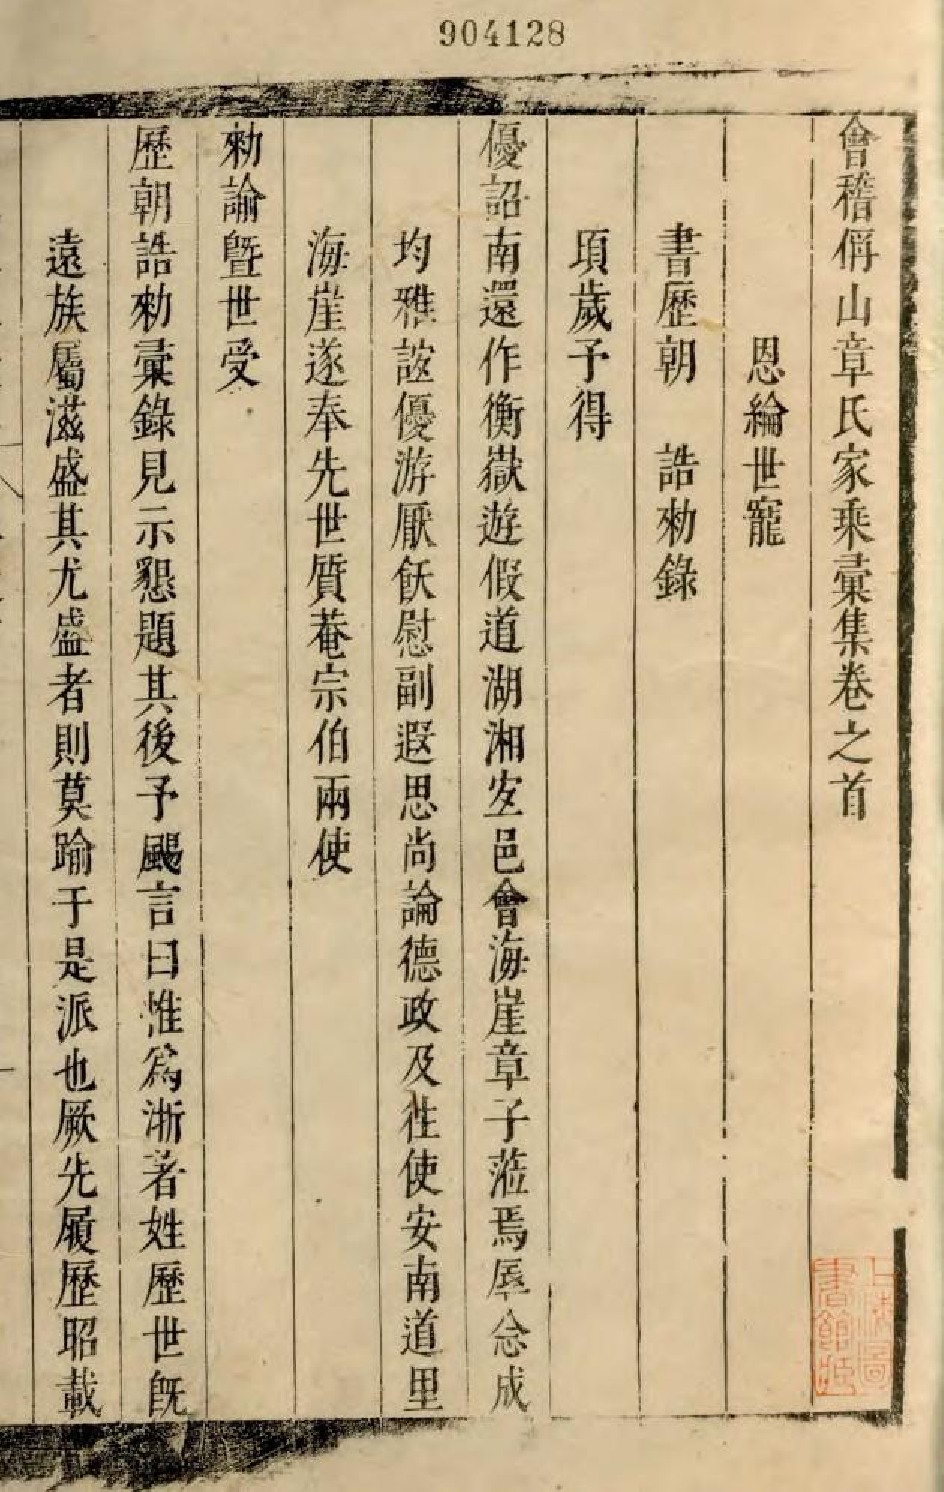 904128
會稽偁山章氏家乘彙集卷之首
恩綸世寵
書歷朝　誥勑錄
頃歲予得
優詔南還作衡嶽遊假道湖湘安邑會海崖章子蒞焉辱念成
均雅誼優游厭飫慰副遐思尚論德政及徃使安南道里
海崖遂奉先世質菴宗伯兩使
勑諭曁世受
歷朝誥勑彙錄見示懇題其後予颺言曰惟爲浙著姓歷世旣
遠族屬滋盛其尤盛者則莫踰于是派也厥先履歷昭載
上海圖書館藏